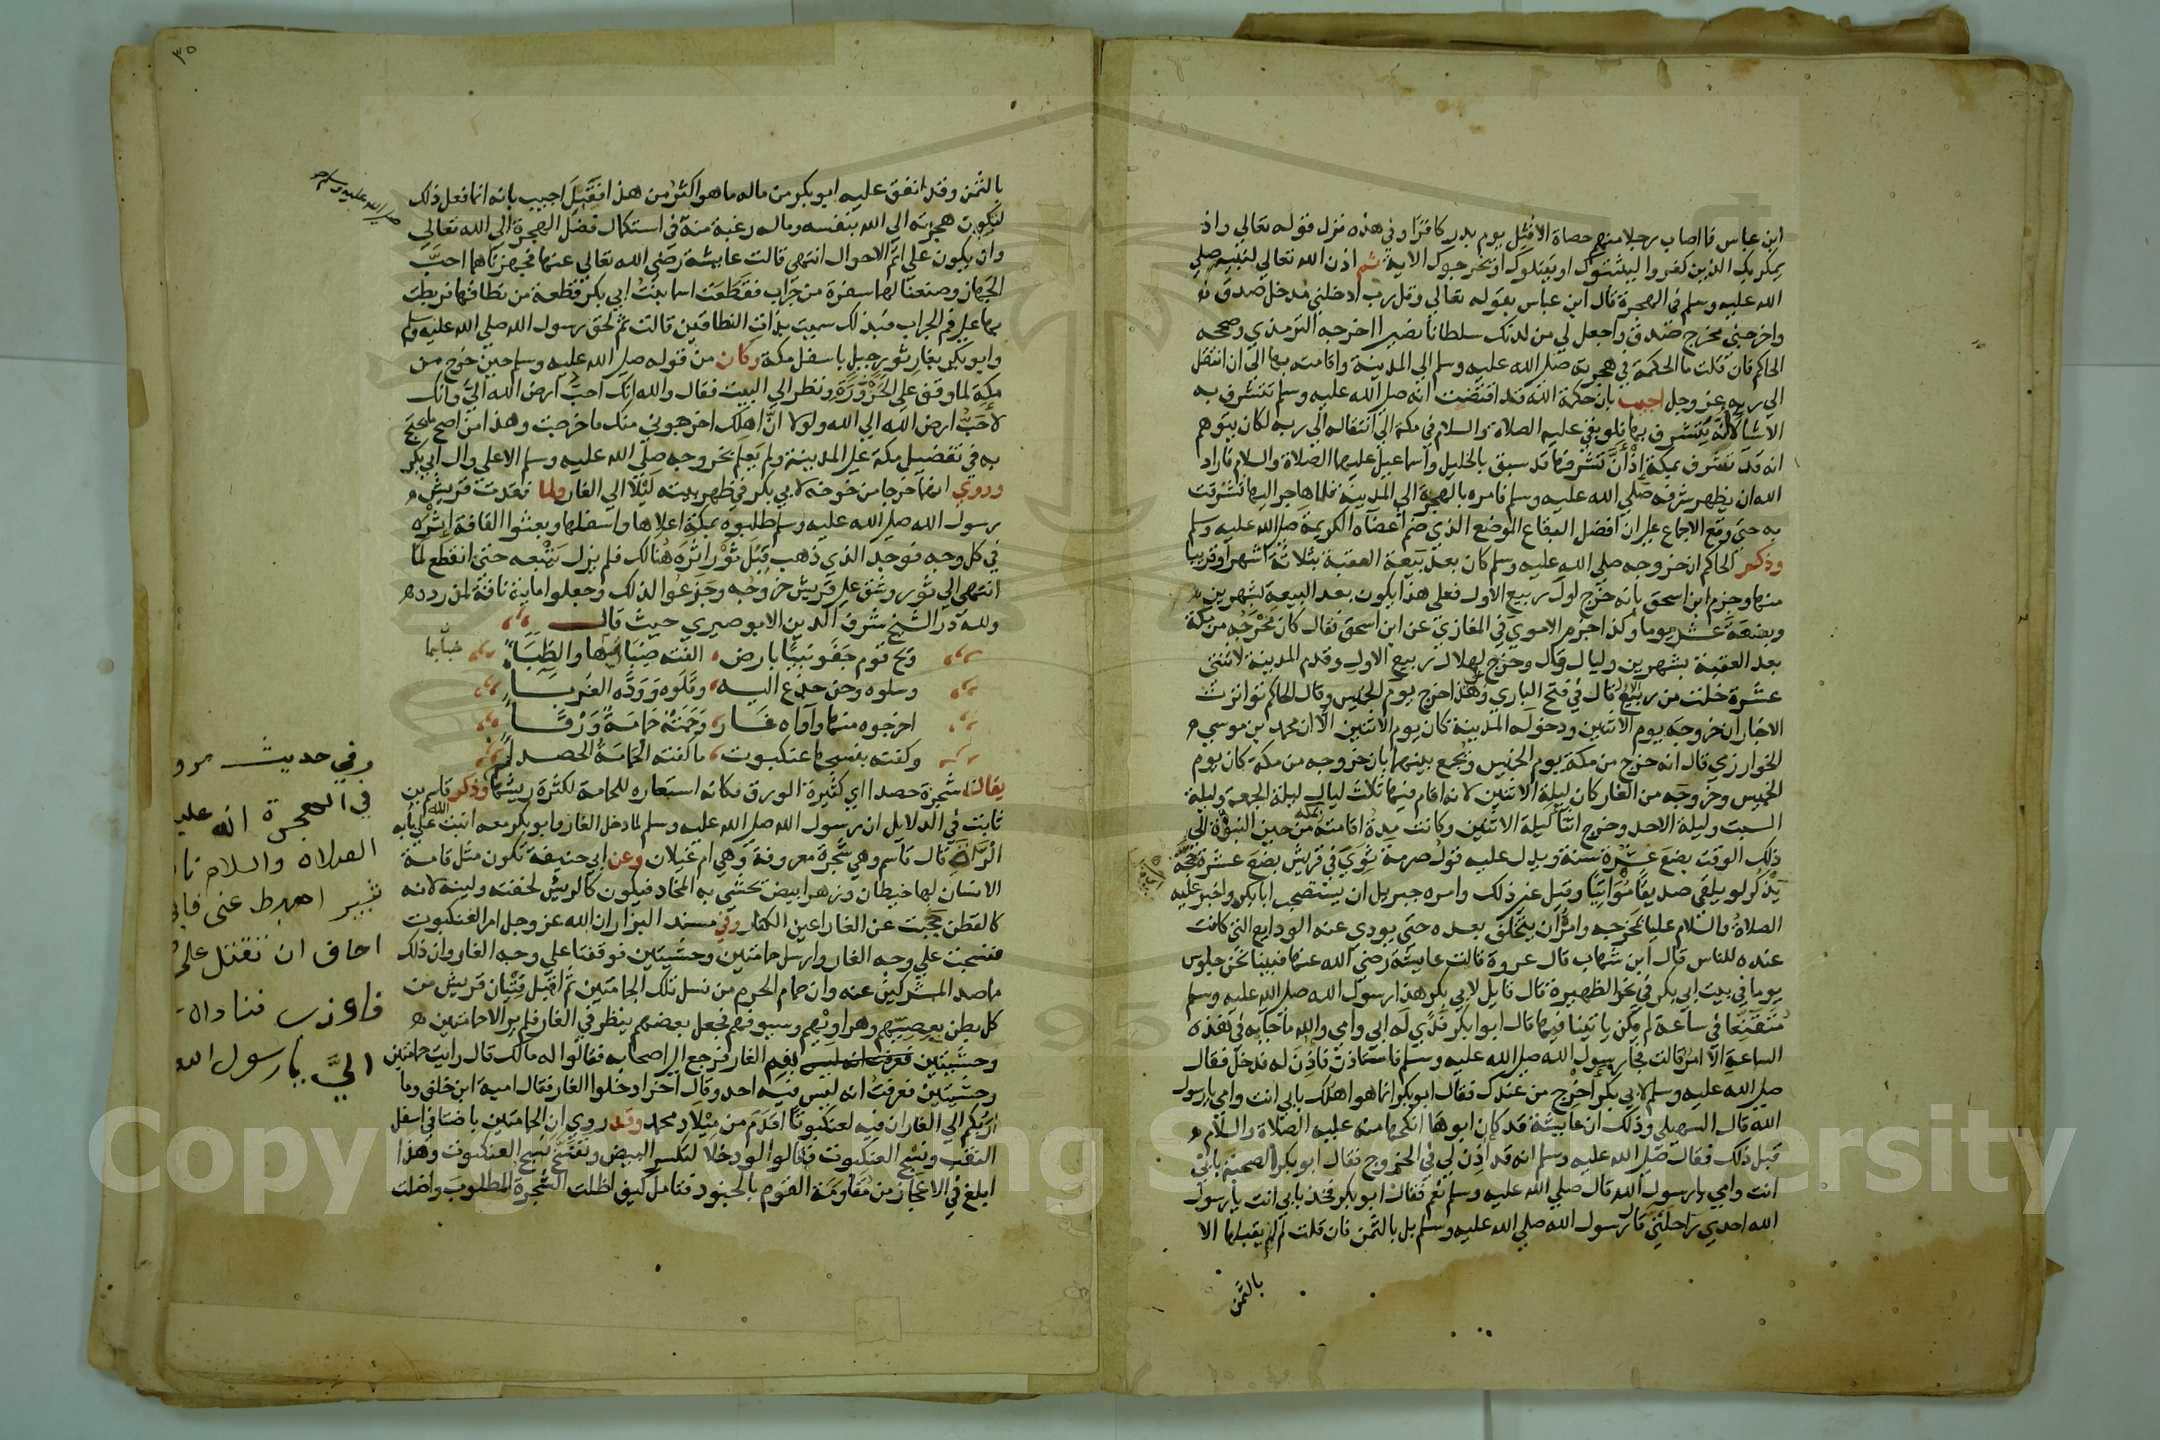 ابن عباس فما اصاب رجلا منهم حصاة الا قتل يوم بدر كافرا وفي هذه نزل قوله تعالي واذ
يمكر بك الذين كفروا ليثبتوك او يقتلوك او يخرجوك الاية ثم اذن الله تعالي لنبيه صلي
الله عليه وسلم في الهجرة قال ابن عباس بقوله تعالي وقل رب ادخلني مدخل صدق
واخرجني مخرج صدق واجعل لي من لدنك سلطانا نصيرا اخرجه الترمذي وصححه
الحاكم فان قلت ما الحكمة في هجرته صلي الله عليه وسلم الي المدينة واقامته بها الي ان انتقل
الي ربه عز وجل اجيب بان حكمة الله قد اقتضت انه صلي الله عليه وسلم تتشرف به
الاشيا لا انه يتشرف بها فلو بقي عليه الصلاة والسلام في مكة الي انتقاله الي ربه لكان يتوهم
انه قد تشرف بمكة اذ ان شرفها قد سبق بالخليل واسماعيل عليهما الصلاة والسلام فاراد
الله ان يظهر شرفه صلي الله عليه وسلم فامره بالهجرة الي المدينة فلما هاجر اليها تشرفت
به حتي وقع الاجماع علي ان افضل البقاع الموضع الذي ضم اعضاه الكريمة صلي الله عليه وسلم
وذكر الحاكم ان خروجه صلي الله عليه وسلم كان بعد بيعة العقبة بثلاثة اشهر او قريبا
منها وجزم ابن اسحق بانه خرج اول ربيع الاول فعلي هذا يكون بعد البيعة بشهرين
وبضعة عشر يوما وكذا جزم الاموي في المغازي عن ابن اسحق فقال كان مخرجه من مكة
بعد العقبة بشهرين وليال وقال وخرج لهلال ربيع الاول وقدم المدينة لاثنتي
عشرة خلت من ربيع الاول قال في فتح الباري وعلي هذا خرج يوم الخميس وقال الحاكم تواترت
الاخبار ان خروجه يوم الاثنين ودخوله المدينة كان يوم الاثنين الا ان محمد ابن موسي
الخوارزي قال انه خرج من مكة يوم الخميس ونجمع بينهما بان خروجه من مكة كان يوم
الخميس وخروجه من الغار كان ليلة الاثنين لانه اقام فيها ثلاث ليال ليلة الجمعة وليلة
السبت وليلة الاحد وخرج اثنا ليلة الاثنين وكانت مدة اقامته بمكة من حين النبوة الي
ذلك الوقت بضع عشرة سنة ويدل عليه قول صرمة ثوي في قريش بضع عشرة حجة
يذكر لو يلقي صديقا مواتيا وقيل غير ذلك وامره جبريل ان يستصحب ابا بكر واخبر عليه
الصلاة والسلام عليا بمخرجه وامره ان يتخلف بعده حتي يودي عنه الودايع التي كانت
عنده للناس قال ابن شهاب قال عروة قالت عايشة رضي الله عنها فبينا نحن جلوس
يوما في بيت ابي بكر في نحر الظهيرة قال قايل لابي بكر هذا رسول الله صلي الله عليه وسلم
متقنعا في ساعة لم يكن ياتينا فيها قال ابو بكر فدي له ابي وامي والله ما جا به في هذه
الساعة الا امر قالت فجا رسول الله صلي الله عليه وسلم فاستاذن فاذن له فدخل فقال
صلي الله عليه وسلم لابي بكر اخرج من عندك فقال ابو بكر انما هو اهلك بابي انت وامي يا رسول
الله قال السهيلي وذلك ان عايشة قد كان ابوها انكحها منه عليه الصلاة والسلام
قبل ذلك فقال صلي الله عليه وسلم انه قد اذن لي في الخروج فقال ابو بكر الصحبة بابي
انت وامي يا رسول الله قال صلي الله عليه وسلم نعم فقال ابو بكر فخذ بابي انت يا رسول
الله احدي راحلتي قال رسول الله صلي الله عليه وسلم بل بالثمن فان قلت لم لم يقبلها الا
بالثمن
٣٥
بالثمن وقد انفق عليه ابو بكر من ماله ما هو اكثر من هذا فقبل اجيب بانه انما فعل ذلك
لتكون هجرته الي الله بنفسه وماله رغبة منه في استكمال فضل الهجرة الي الله تعالي
صلي الله عليه وسلم
وان يكون علي اتم الاحوال انتهي قالت عايشة رضي الله تعالي عنها فجهزناهما احب
الجهاز وصنعنا لهما سفرة من جراب فقطعت اسما بنت ابي بكر قطعة من نطاقها فربطت
بها علي فم الجراب فبذلك سميت بذات النطاقين قالت ثم لحق رسول الله صلي الله عليه وسلم
وابو بكر بغار ثور جبل باسفل مكة وكان من قوله صلي الله عليه وسلم حين خرج من
مكة لما وقف علي الحزورة ونظر الي البيت فقال والله انك احب ارض الله الي وانك
لاحب ارض الله الي الله ولولا ان اهلك اخرجوني منك ما خرجت وهذا من اصح ما يحتج
به في تفضيل مكة علي المدينة ولم يعلم بخروجه صلي الله عليه وسلم الا علي وال ابي بكر
وروي انهما خرجا من خوخة لابي بكر في ظهر بيته ليلا الي الغار ولما فقدت قريش
رسول الله صلي الله عليه وسلم طلبوه بمكة اعلاها واسفلها وبعثوا القافة اثره
في كل وجه فوجد الذي ذهب قبل ثور اثره هنالك فلم يزل يتبعه حتي انقطع لما
انتهي الي ثور وشق علي قريش خروجه وجزعوا لذلك وجعلوا ماية ناقة لمن رده
ولله در الشيخ شرف الدين الابوصيري حيث قال
ويح قوم جفو نبيا بارض الفته ضبابها والظباء
وسلوه وحن جذع اليه وقلوه ووده الغرباء
اخرجوه منها وآواه غار وحمته حمامة ورقاء
وكفته بنسجها عنكبوت ما كفته الحمامة الحصداء
يقالت شجرة حصدا اي كثيرة الورق فكانه استعاره للحمامة لكثرة ريشها وذكر قاسم بن
ثابت في الدلايل ان رسول الله صلي الله عليه وسلم لما دخل الغار وابو بكر معه انبت الله علي بابه
الراة قال قاسم وهي شجرة معروفة وهي ام غيلان وعن ابي حنيفة تكون مثل قامة
الانسان لها خيطان وزهر ابيض تحشي به المخاد فيكون كالريش لخفته ولينه لانه
كالقطن فحجبت عن الغار اعين الكفار وفي مسند البزار ان الله عز وجل امر العنكبوت
فنسجت علي وجه الغار وارسل حمامتين وحشيتين فوقفتا علي وجه الغار وان ذلك
ما صد المشركين عنه وان حمام الحرم من نسل تلك الحمامتين ثم اقبل فتيان قريش من
كل بطن بعصيهم وهراويهم وسيوفهم فجعل بعضهم ينظر في الغار فلم ير الا حمامتين
وحشيتين بفم الغار فرجع الي اصحابه فقالوا له مالك قال رايت حمامتين
وحشيتين فعرفت انه ليس فيه احد وقال آخر ادخلوا الغار فقال امية ابن خلف وما
اربكم الي الغار ان فيه لعنكبوتا اقدم من ميلاد محمد وقد روي ان الحمامتين باضتا في اسفل
النقب ونسج العنكبوت فقالوا لو دخلا لتكسر البيض وتفسخ نسج العنكبوت وهذا
ابلغ في الاعجاز من مقاومة القوم بالجنود فتامل كيف اظلت الشجرة المطلوب واضلت
وفي حديث مرو
في الهجرة انه عليه
الصلاة والسلام نا
ثبير اهبط عني فاني
اخاف ان تقتل علي
فاعذب فناداه
الي يا رسول الله
Copyright © King Saud University